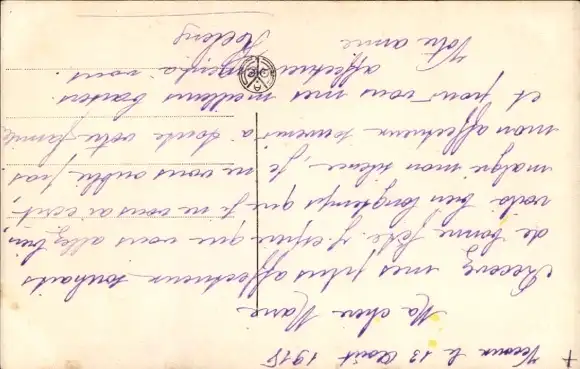 le 13 Août 1918
Ma chère Marie
Recevez mes plus affectueux souhaits
de bonne fête. J'espère que vous allez bien
voilà bien longtemps que je ne vous ai écrit
malgré mon silence, je ne vous oublie pas
mon affectueux souvenir à toute votre famille
et pour vous mes meilleurs baisers.
affectueu à vous.
Votre amie